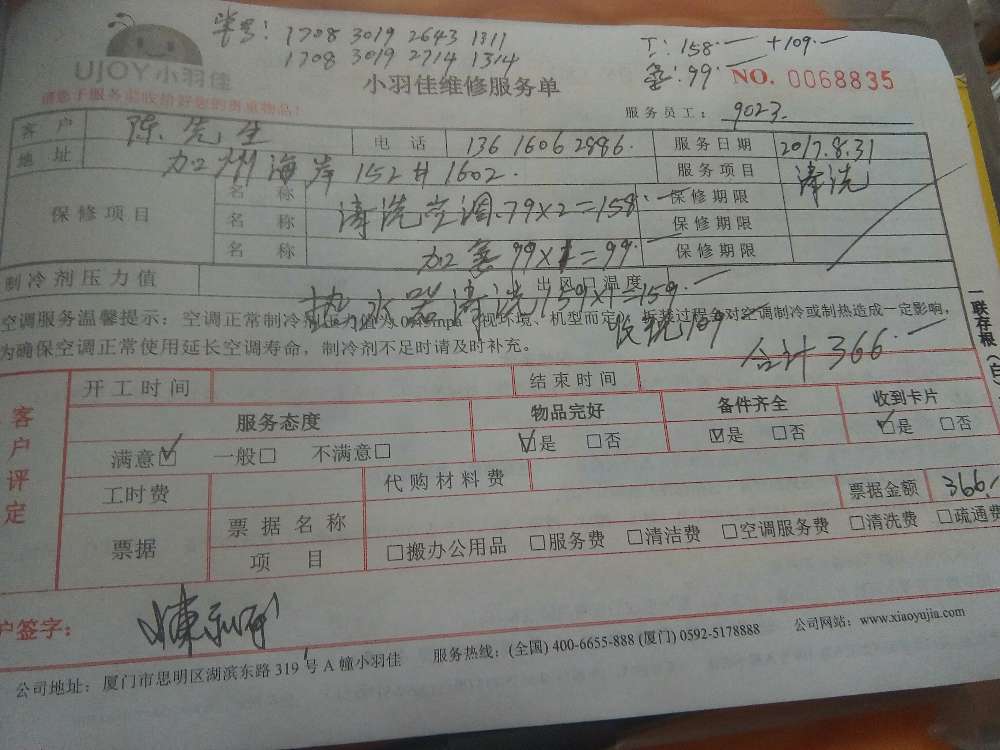 单号: 1708 3019 2643 1311
1708 3019 2714 1314
T: 158.— +109.—
氟: 99.—
UJOY小羽佳
小羽佳维修服务单
NO. 0068835
服务员工: 9023.
客户 陈先生 电话 13616062886. 服务日期 2017.8.31
地址 加州海岸152#1602. 服务项目 清洗
保修项目
名称 清洗空调.79×2=158.— 保修期限
名称 保修期限
名称 加氟99×1=99.— 保修期限
制冷剂压力值 出风口温度
热水器清洗159×1=159.—
空调服务温馨提示: 空调正常制冷剂压力值为 视环境、机型而定, 拆装过程会对空调制冷或制热造成一定影响,
为确保空调正常使用延长空调寿命, 制冷剂不足时请及时补充。
109
合计366.—
一联存根
客户评定
开工时间 结束时间
服务态度 物品完好 备件齐全 收到卡片
满意☑ 一般□ 不满意□ ☑是 □否 ☑是 □否 ☑是 □否
工时费 代购材料费 票据金额 366.—
票据 票据名称
项目 □搬办公用品 □服务费 □清洁费 □空调服务费 □清洗费 □疏通费
户签字:
公司地址: 厦门市思明区湖滨东路319号A幢小羽佳 服务热线: (全国) 400-6655-888 (厦门) 0592-5178888 公司网站: www.xiaoyujia.com